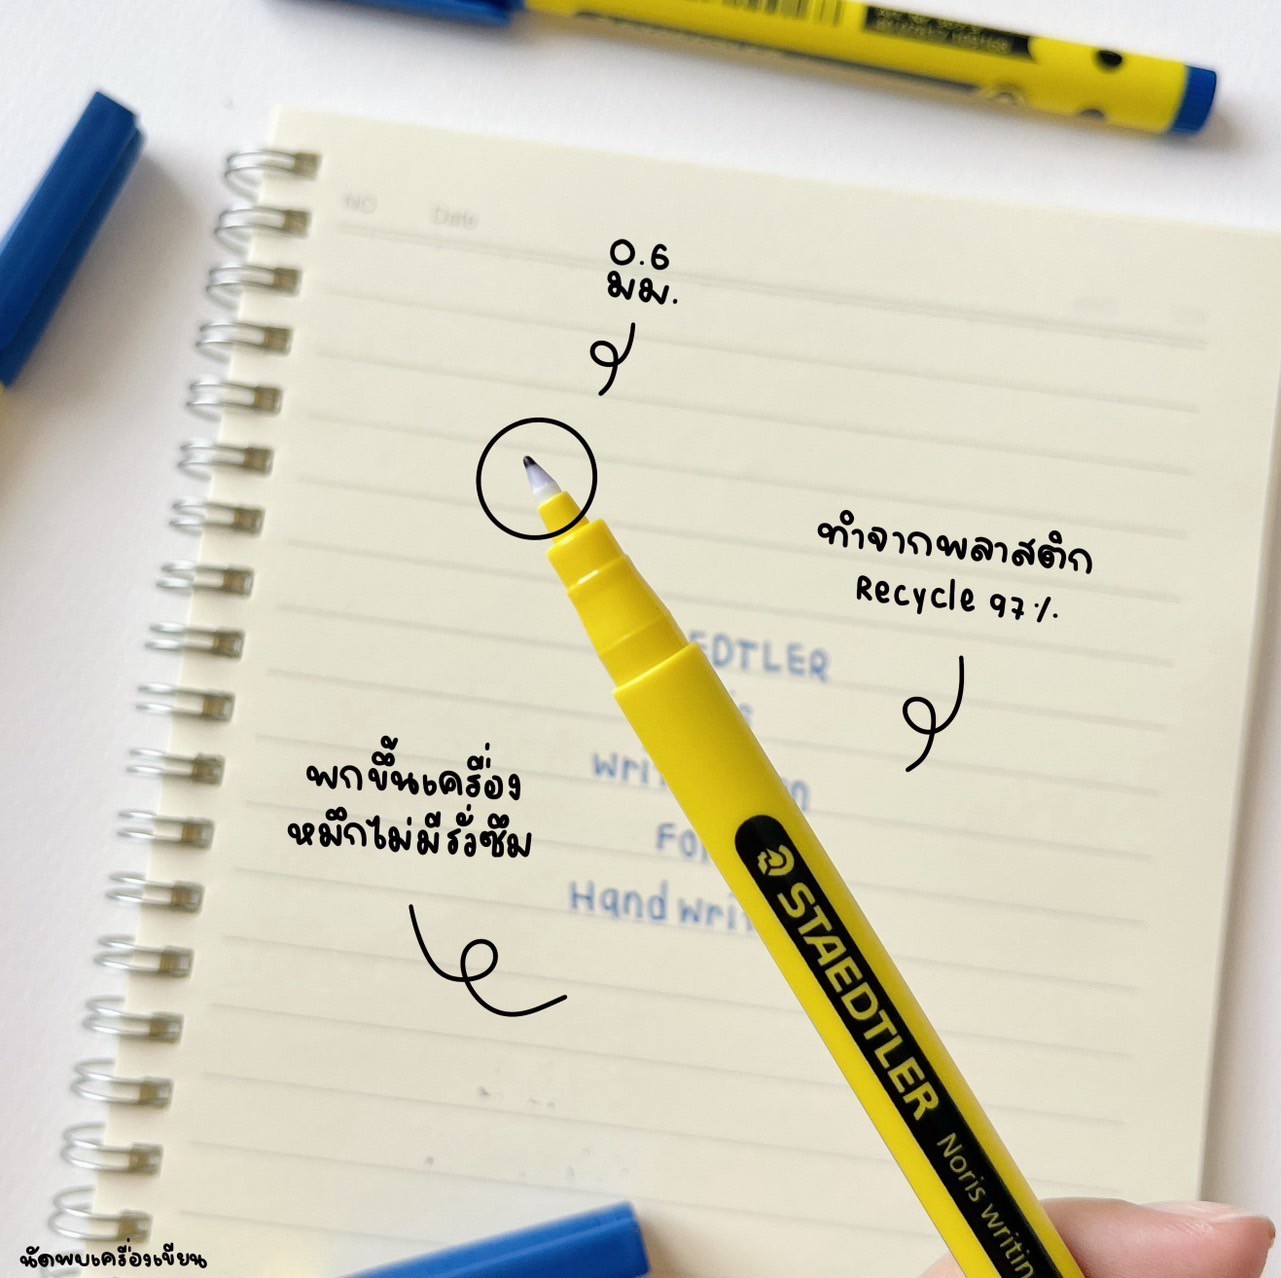 NO Date
0.6
มม.
ทำจากพลาสติก
Recycle 97%
EDTLER
พกขึ้นเครื่อง
หมึกไม่มีรั่วซึม
Hand wri
STAEDTLER Noris writin
นัดพบเครื่องเขียน